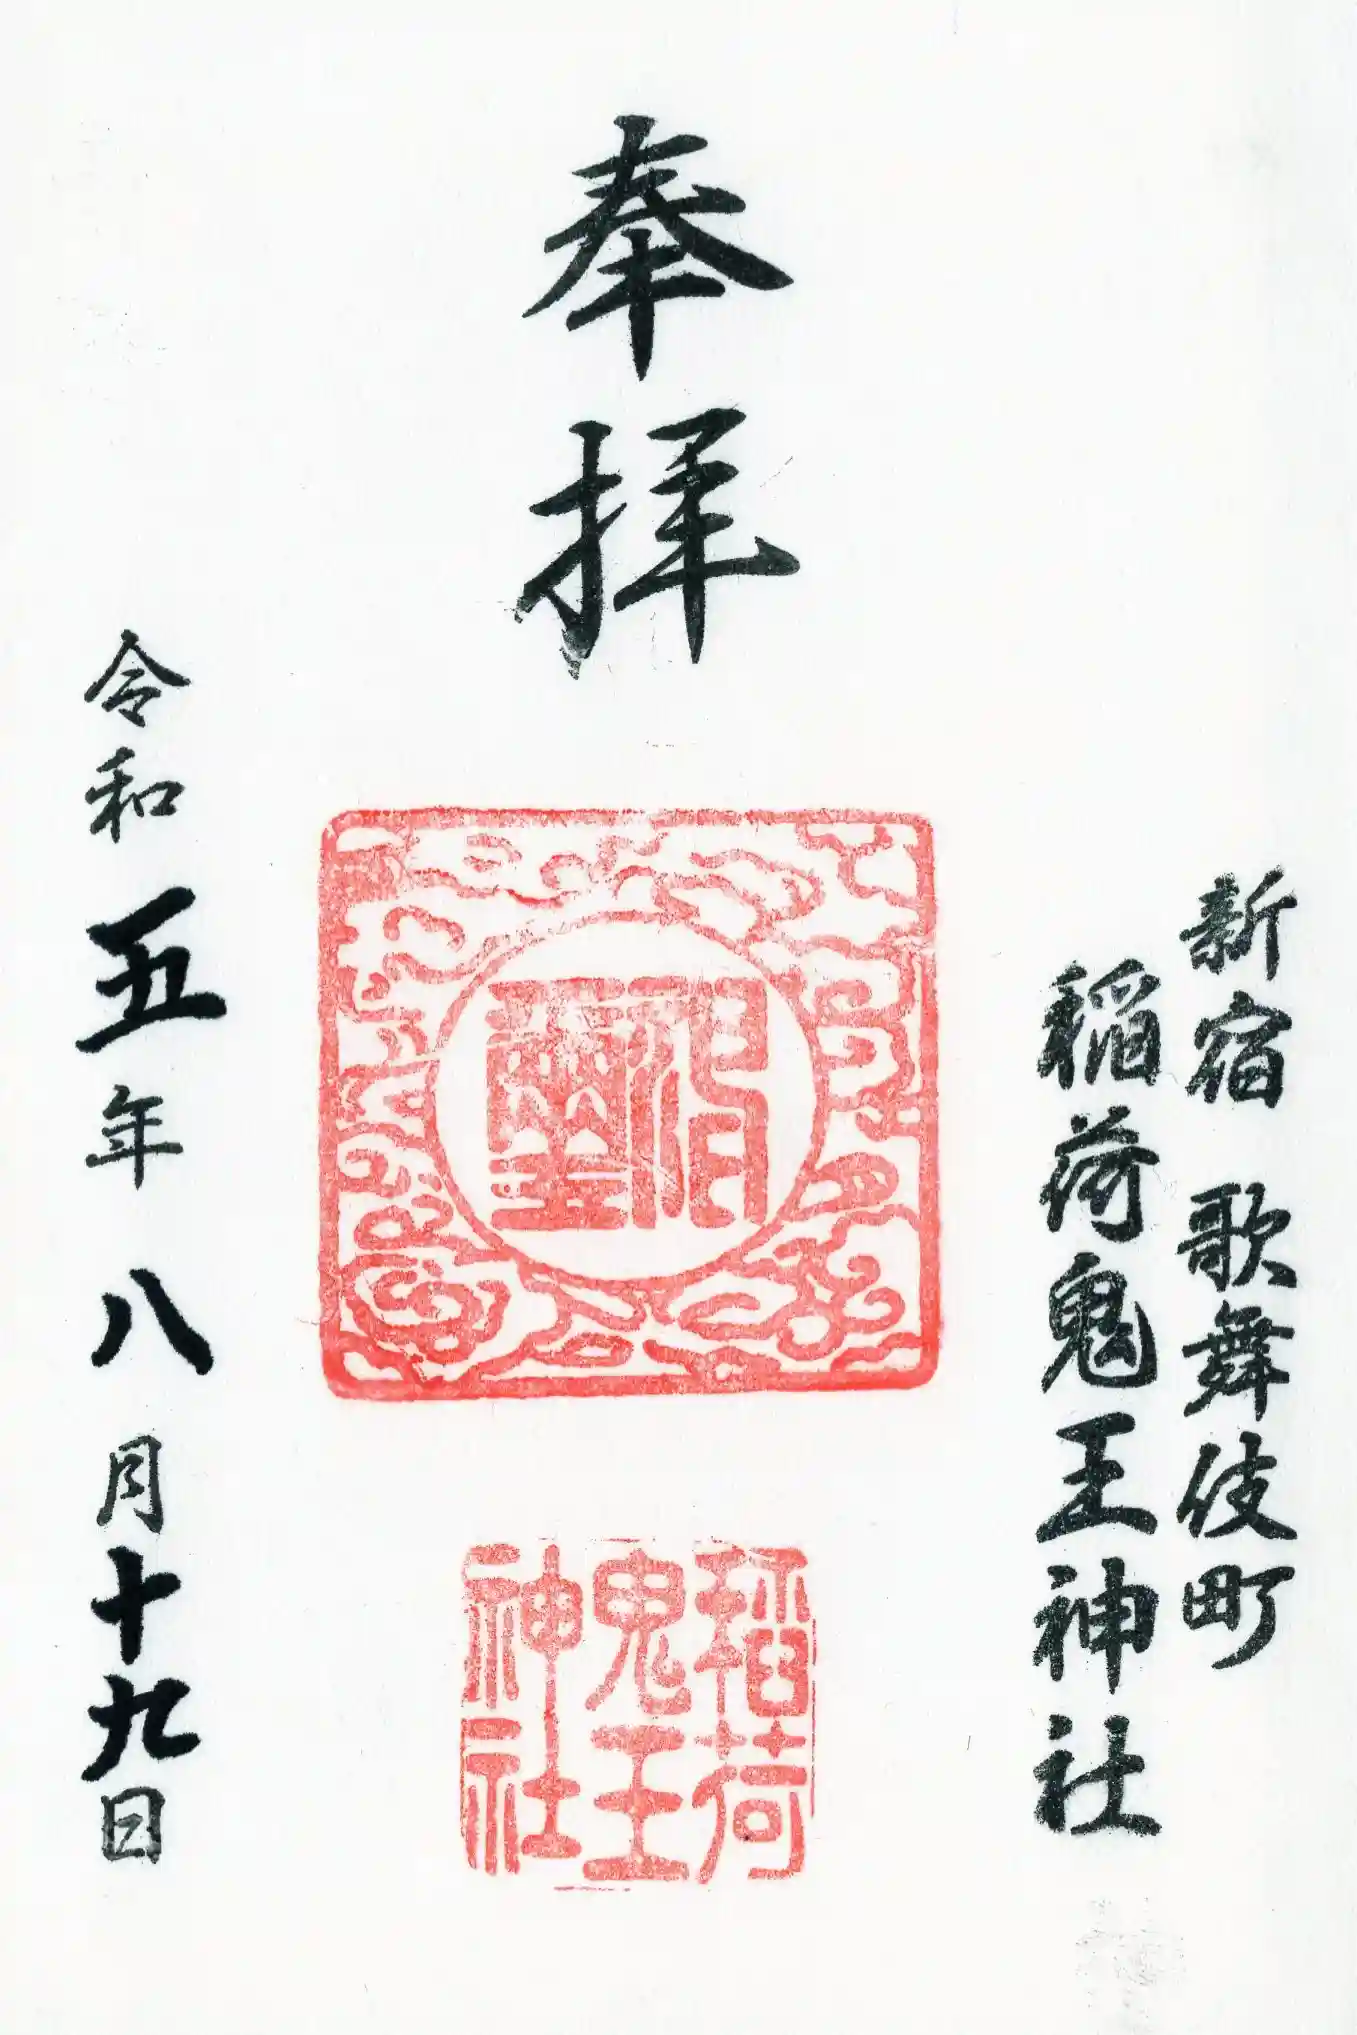 新宿 歌舞伎町
稲荷鬼王神社
奉拝
稲荷
鬼王
神社
令和五年八月十九日